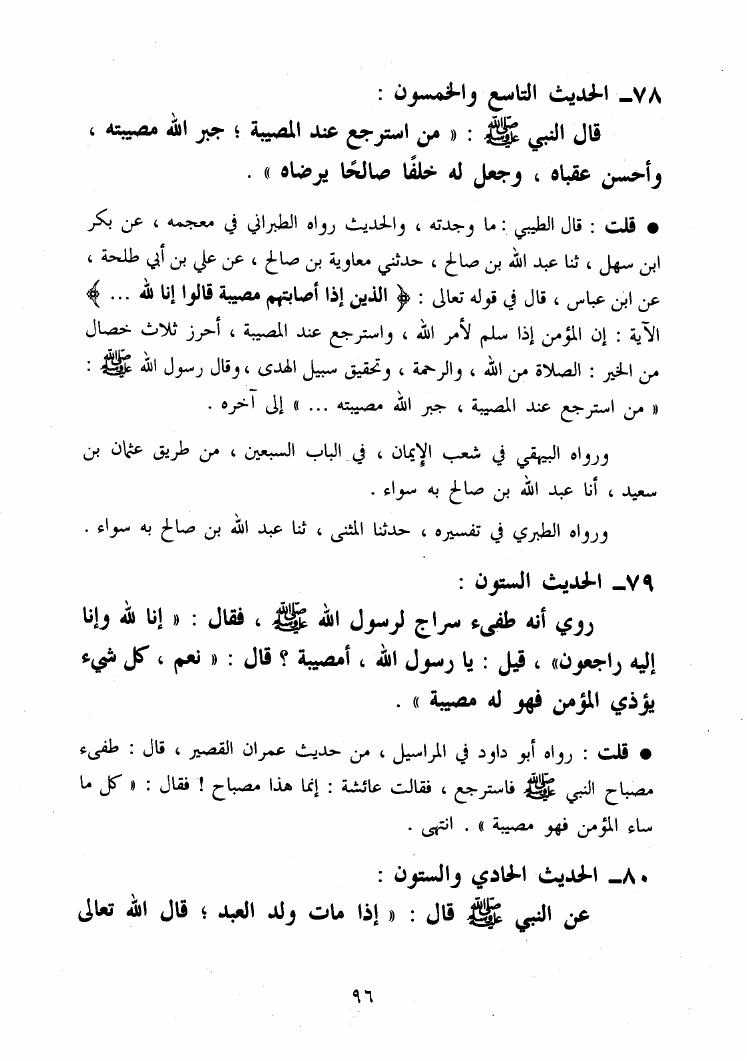 ٧٨ــ الحديث التاسع والخمسون :
قال النبي ﷺ : « من استرجع عند المصيبة ؛ جبر الله مصيبته ،
وأحسن عقباه ، وجعل له خلفًا صالحًا يرضاه » .
● قلت : قال الطيبي : ما وجدته ، والحديث رواه الطبراني في معجمه ، عن بكر
ابن سهل ، ثنا عبد الله بن صالح ، حدثني معاوية بن صالح ، عن علي بن أبي طلحة ،
عن ابن عباس ، قال في قوله تعالى : ﴿ الذين إذا أصابتهم مصيبة قالوا إنا لله ... ﴾
الآية : إن المؤمن إذا سلم لأمر الله ، واسترجع عند المصيبة ، أحرز ثلاث خصال
من الخير : الصلاة من الله ، والرحمة ، وتحقيق سبيل الهدى ، وقال رسول الله ﷺ :
« من استرجع عند المصيبة ، جبر الله مصيبته ... » إلى آخره .
ورواه البيهقي في شعب الإيمان ، في الباب السبعين ، من طريق عثمان بن
سعيد ، أنا عبد الله بن صالح به سواء .
ورواه الطبري في تفسيره ، حدثنا المثنى ، ثنا عبد الله بن صالح به سواء .
٧٩ــ الحديث الستون :
روي أنه طفىء سراج لرسول الله ﷺ ، فقال : « إنا لله وإنا
إليه راجعون» ، قيل : يا رسول الله ، أمصيبة ؟ قال : « نعم ، كل شيء
يؤذي المؤمن فهو له مصيبة » .
● قلت : رواه أبو داود في المراسيل ، من حديث عمران القصير ، قال : طفىء
مصباح النبي ﷺ فاسترجع ، فقالت عائشة : إنما هذا مصباح ! فقال : « كل ما
ساء المؤمن فهو مصيبة » . انتهى .
٨٠ــ الحديث الحادي والستون :
عن النبي ﷺ قال : « إذا مات ولد العبد ؛ قال الله تعالى
٩٦